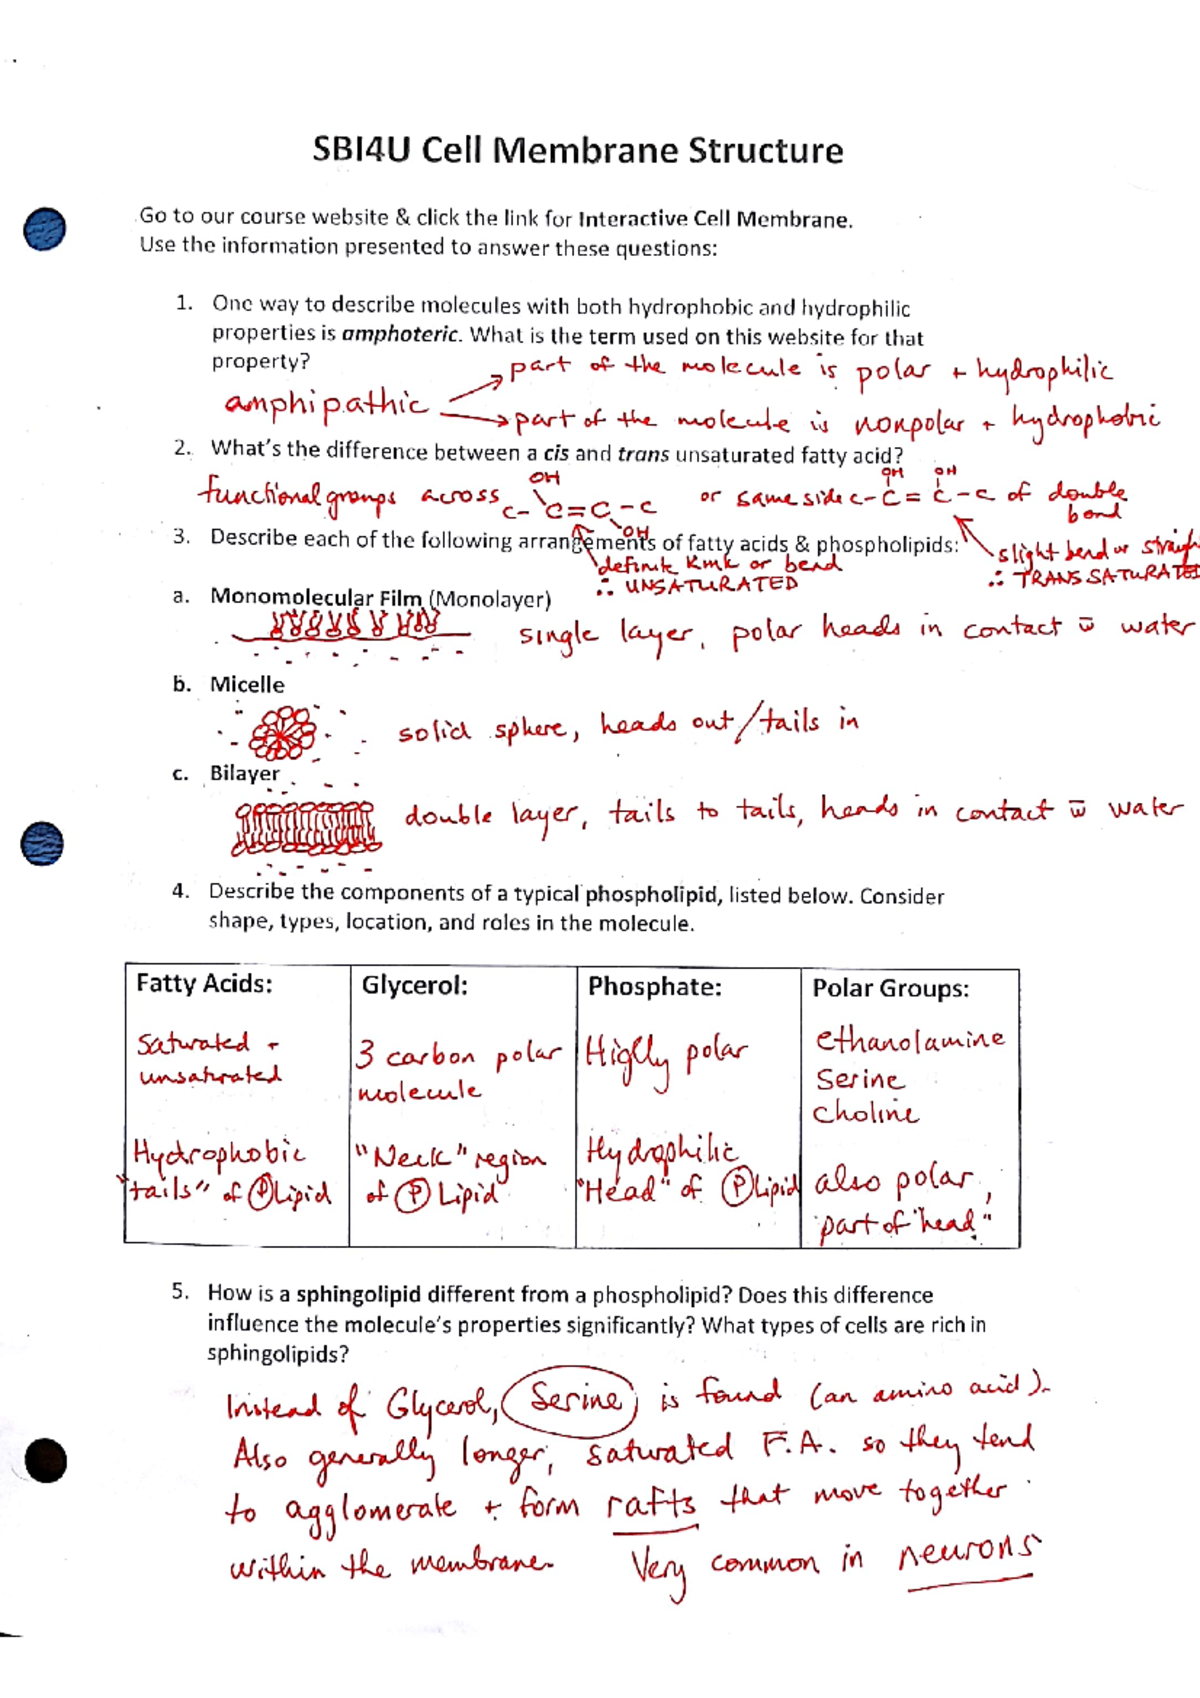 SBI4U Cell Membrane Structure
Go to our course website & click the link for Interactive Cell Membrane.
Use the information presented to answer these questions:
1. One way to describe molecules with both hydrophobic and hydrophilic
properties is amphoteric. What is the term used on this website for that
property?
part of the molecule is polar + hydrophilic
amphipathic
part of the molecule is nonpolar + hydrophobic
2. What's the difference between a cis and trans unsaturated fatty acid?
functional groups across C-C=C-C or same side C-C=C-C of double bond
OH OH OH
OH
3. Describe each of the following arrangements of fatty acids & phospholipids:
definite kink or bend
∴ UNSATURATED
slight bend or straigh
∴ TRANS SATURATED
a. Monomolecular Film (Monolayer)
single layer, polar heads in contact w̄ water
b. Micelle
solid sphere, heads out/tails in
c. Bilayer
double layer, tails to tails, heads in contact w̄ water
4. Describe the components of a typical phospholipid, listed below. Consider
shape, types, location, and roles in the molecule.
Fatty Acids:
saturated +
unsaturated
Hydrophobic
"tails" of Ⓟ Lipid
Glycerol:
3 carbon polar
molecule
"Neck" region
of Ⓟ Lipid
Phosphate:
Highly polar
Hydrophilic
"Head" of Ⓟ Lipid
Polar Groups:
ethanolamine
Serine
choline
also polar,
part of "head"
5. How is a sphingolipid different from a phospholipid? Does this difference
influence the molecule's properties significantly? What types of cells are rich in
sphingolipids?
Instead of Glycerol, Serine is found (an amino acid).
Also generally longer, saturated F.A. so they tend
to agglomerate + form rafts that move together
within the membrane. Very common in neurons